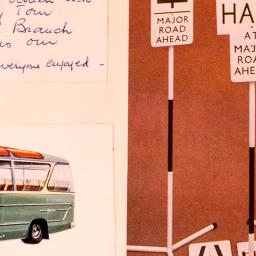 Tour
Branch
our
everyone enjoyed -
MAJOR
ROAD
AHEAD
HA
AT
MAJ
ROA
AHE